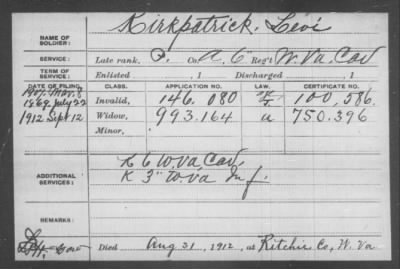 NAME OF SOLDIER: Kirkpatrick, Levi
SERVICE: Late rank, P. Co. A, 6 Reg't W. Va. Cav
TERM OF SERVICE: Enlisted , 1 Discharged , 1
DATE OF FILING. CLASS. APPLICATION NO. LAW. CERTIFICATE NO.
1907. Mar. 8
1869. July 22 Invalid, 146.080 100,586.
1912 Sept 12 Widow, 993.164 a 750.396
Minor,
ADDITIONAL SERVICES: K 6 W.Va Cav
K 3" W.Va Inf.
REMARKS:
Died Aug 31, 1912, at Ritchie Co, W. Va